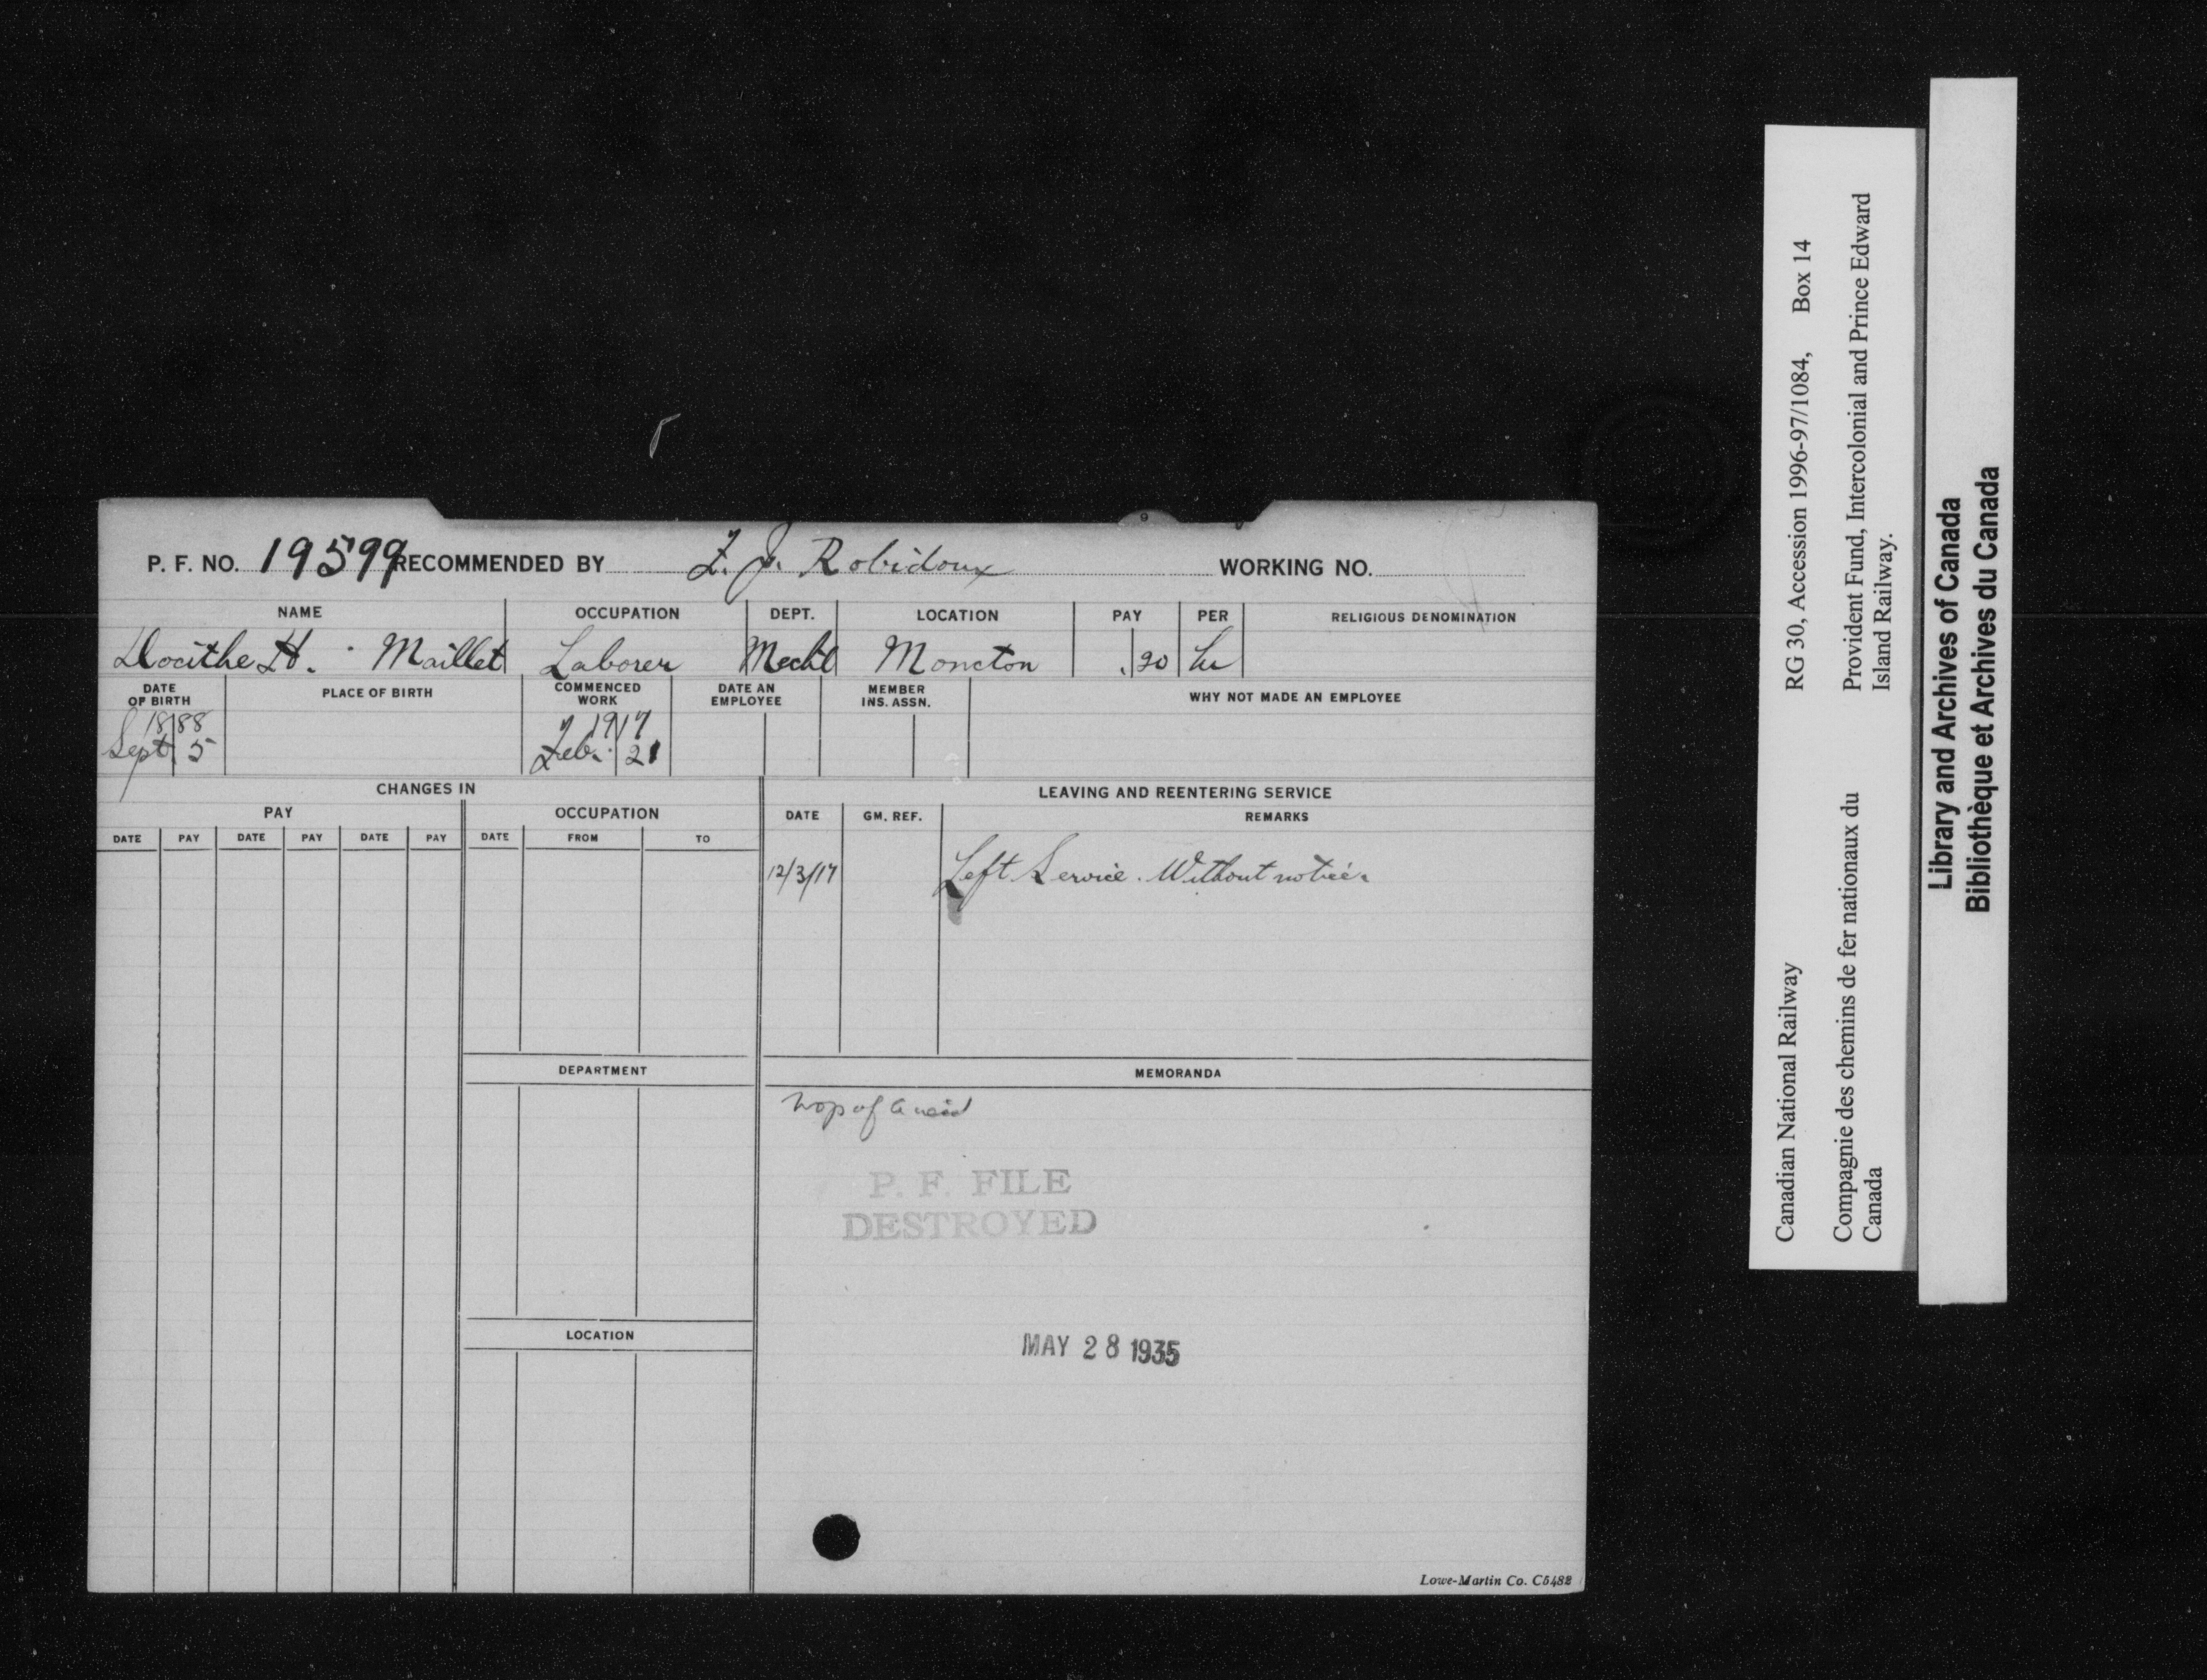 P. F. NO. 19599 RECOMMENDED BY F. J. Robidoux WORKING NO.
NAME OCCUPATION DEPT. LOCATION PAY PER RELIGIOUS DENOMINATION
Docithe H. Maillet Laborer Mechl Moncton .20 hr
DATE OF BIRTH PLACE OF BIRTH COMMENCED WORK DATE AN EMPLOYEE MEMBER INS. ASSN. WHY NOT MADE AN EMPLOYEE
1888 1917
Sept 5 Feb. 21
CHANGES IN LEAVING AND REENTERING SERVICE
PAY OCCUPATION DATE GM. REF. REMARKS
DATE PAY DATE PAY DATE PAY DATE FROM TO
12/3/17 Left Service. Without notice.
DEPARTMENT MEMORANDA
P. F. FILE
DESTROYED
LOCATION
MAY 28 1935
Lowe-Martin Co. C5482
Canadian National Railway RG 30, Accession 1996-97/1084, Box 14
Compagnie des chemins de fer nationaux du
Canada
Provident Fund, Intercolonial and Prince Edward
Island Railway.
Library and Archives of Canada
Bibliothèque et Archives du Canada